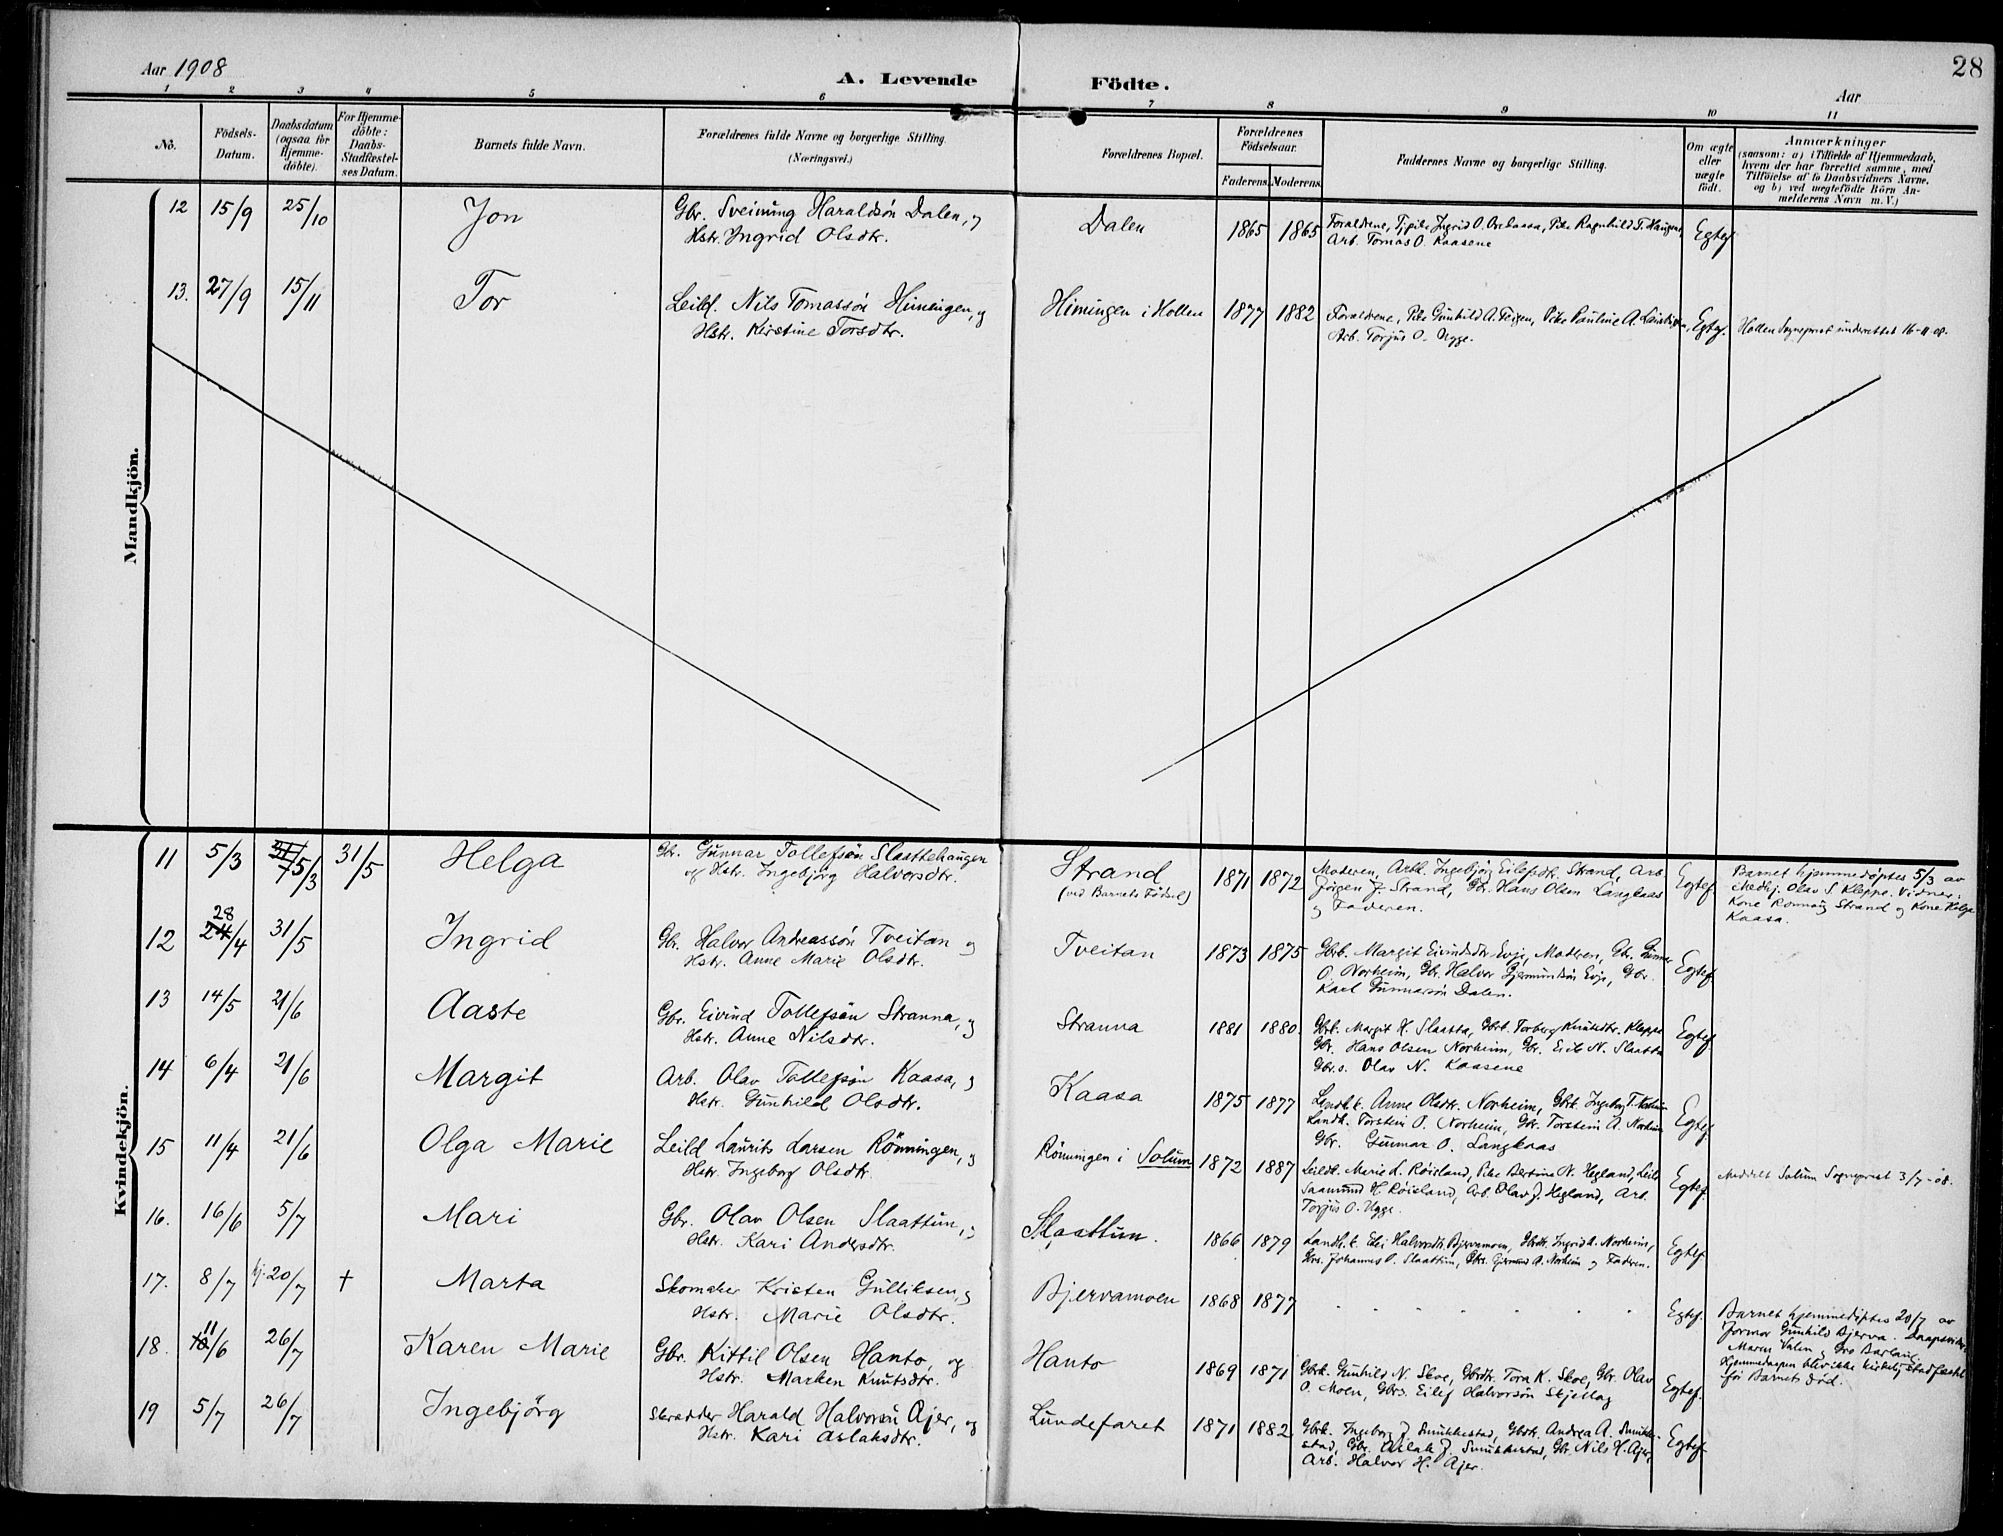 Aar 1908
A. Levende Födte.
28
Aar
1 2 3 4 5 6 7 8 9 10 11
No.
Födsels-Datum.
Daabsdatum (ogsaa for Hjemmedöbte).
For Hjemmedöbte: Daabs-Stadfæstelses Datum.
Barnets fulde Navn.
Forældrenes fulde Navne og borgerlige Stilling. (Næringsvei.)
Forældrenes Bopæl.
Forældrenes Födselsaar.
Faderens. Moderens.
Faddernes Navne og borgerlige Stilling.
Om ægte eller uægte födt.
Anmærkninger
(saasom: a) i Tilfælde af Hjemmedaab, hvem der har forrettet samme, med Tilföielse af to Daabsvidners Navne, og b) ved uegtefödte Börn Anmelderens Navn m. V.)
Mandkjön.
12 15/9 25/10 Jon Gbr. Sveinung Haraldsön Dalen, og Dalen 1865 1865 Forældrene, Tjpike Ingrid O. Pike Ragnhild T. Haugen, Egtef.
Hstr. Ingrid Olsdtr. Arb. Tomas O. Kaasene
13. 27/9 15/11 Tor Leild. Nils Tomassön Himingen, og Himingen i Hollen 1877 1882 Forældrene, Pike Gunhild A. Teigen, Pike Pauline A. Egtef. Hollen Sogneprest underrettet 16-11-08.
Hstr. Kirstine Torsdtr. Arb. Torjus O. Ugge.
Kvindekjön.
11 5/3 5/3 31/5 Helga Gbr. Gunnar Tollefsön Slaattehaugen Strand 1871 1872 Moderen, Arbk. Ingebjörg Eilefsdtr. Strand, Arb. Egtef. Barnet hjemmedöptes 5/3 av
og Hstr. Ingebjörg Halvorsdtr. (ved Barnets Födsel) Jörgen J. Strand, Gbr. Hans Olsen Langkaas Medhj. Olav S. Kleppe. Vidner:
og Faderen. Kone Ronnaug Strand og Kone Helga
Kaasa.
12 28/4 31/5 Ingrid Gbr. Halvor Andreassön Tveitan og Tveitan 1873 1875 Gbrk. Margit Eivindsdtr. Evje, Moderen, Gbr. Gunnar Egtef.
Hstr. Anne Marie Olsdtr. O. Norheim, Gbr. Halvor Gjermundsön Evje, Gbr.
Karl Gunnarsön Dalen.
13 14/5 21/6 Aaste Gbr. Eivind Tollefsön Stranna, og Stranna 1881 1880 Gbrk. Margit H. Slaatta, Gbrk. Torberg Knutsdtr. Kleppe Egtef.
Hstr. Anne Nilsdtr. Gbr. Hans Olsen Norheim, Gbr. Eilev N. Slaatta
Gbrs. Olav N. Kaasene
14 6/4 21/6 Margit Arb. Olav Tollefsön Kaasa, og Kaasa 1875 1877 Landh.k. Anne Olsdtr. Norheim, Gbrk. Ingeborg T. Norheim Egtef.
Hstr. Gunhild Olsdtr. Landh. Torstein O. Norheim, Gbr. Torstein A. Norheim
Gbr. Gunnar O. Langkaas
15 11/4 21/6 Olga Marie Leild Laurits Larsen Rönningen, og Rönningen i Solum 1872 1887 Leildk. Marie L. Röisland, Pike Bertine N. Hegland, Leild Egtef. Meddelt Solum Sogneprest 3/7-08.
Hstr. Ingeborg Olsdtr. Saamund H. Röisland, Arb. Olav J. Hegland, Arb.
Torjus O. Ugge.
16. 16/6 5/7 Mari Gbr. Olav Olsen Slaattun, og Slaattun. 1866 1879 Landh.k. Eli Halvorsdtr. Bjervamoen, Gbrdtr. Ingrid A. Norheim, Egtef.
Hstr. Kari Andersdtr. Gbrs. Johannes O. Slaattun, Gbrs. Gjermund A. Norheim og Faderen.
17. 8/7 hj. 20/7 † Marta Skomaker Kristen Gulliksen, og Bjervamoen 1868 1877 Egtef. Barnet hjemmedöptes 20/7 av
Hstr. Marie Olsdtr. Jormor Gunhild Bjerva. Daapsvidner
Maren Valen og Gro Barlaug.
Hjemmedaapen blev ikke kirkelig stadfæstet
för Barnets död.
18. 11/6 26/7 Karen Marie Gbr. Kittil Olsen Hanto, og Hanto 1869 1871 Gbrk. Gunhild N. Skoe, Gbrdtr. Tora K. Skoe, Gbr. Olav Egtef.
Hstr. Marken Knutsdtr. O. Moen, Gbrs. Eilef Halvorsön Skjellag
19 5/7 26/7 Ingebjörg Skrædder Harald Halvorsn Ajer, og Lundefaret 1871 1882 Gbrk. Ingeborg J. Smukkestad, Gbrk. Andrea A. Smukke- Egtef.
Hstr. Kari Aslaksdtr. stad, Gbr. Aslak J. Smukkestad, Gbr. Nils H. Ajer,
Arb. Halvor H. Ajer.